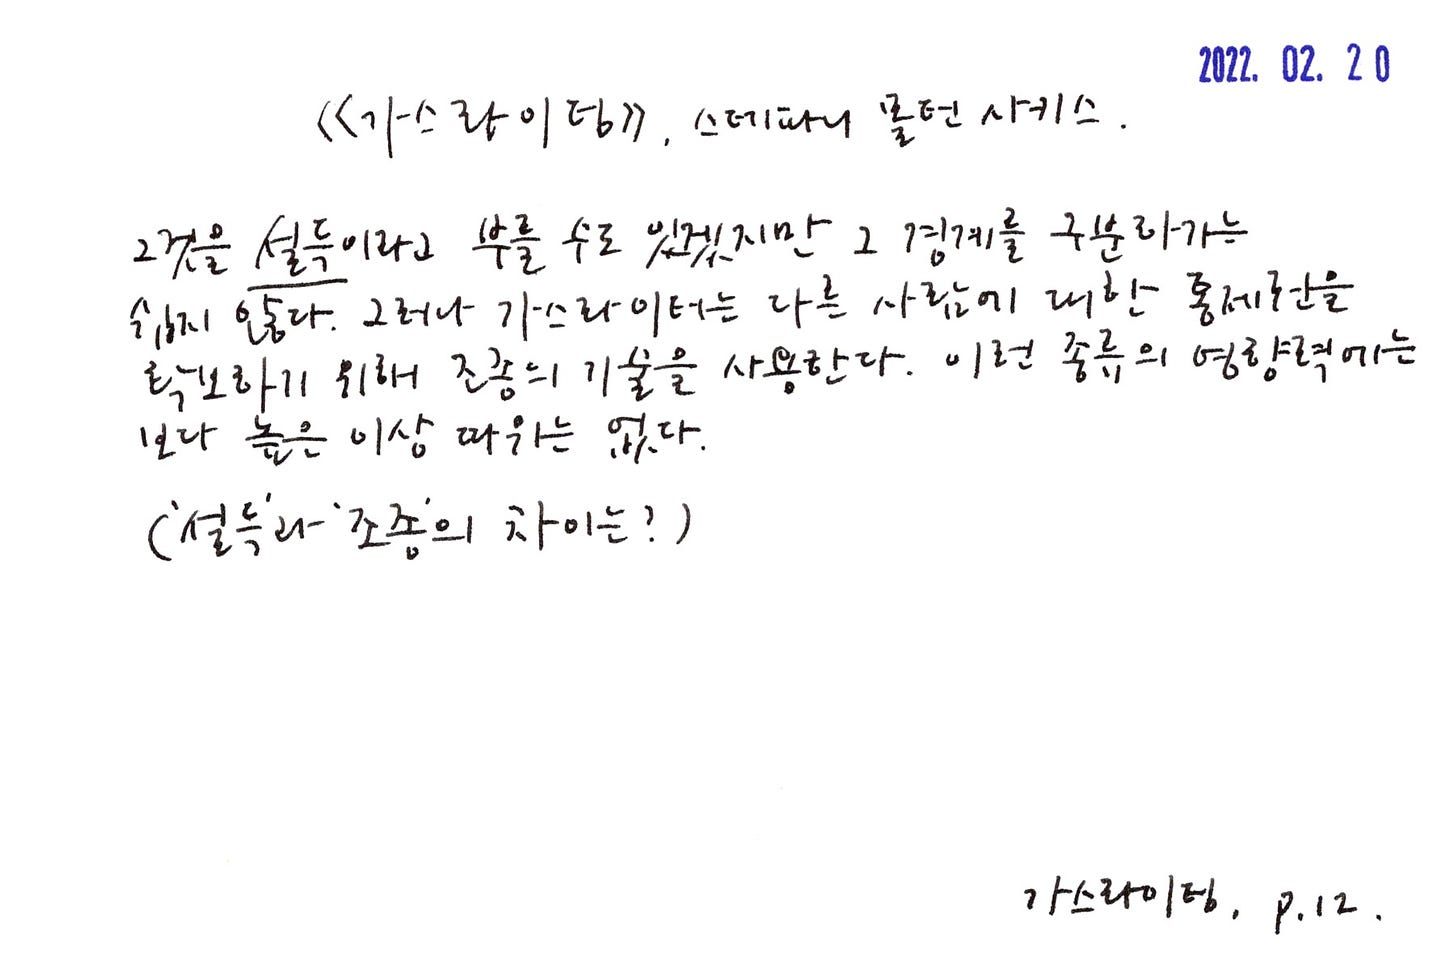 2022. 02. 20
《가스라이팅》, 스테파니 몰턴 사키스.
그것을 설득이라고 부를 수도 있겠지만 그 경계를 구분하기는
쉽지 않다. 그러나 가스라이터는 다른 사람에 대한 통제권을
확보하기 위해 조종의 기술을 사용한다. 이런 종류의 영향력에는
보다 높은 이상 따위는 없다.
('설득'과 '조종'의 차이는?)
가스라이팅, p.12.